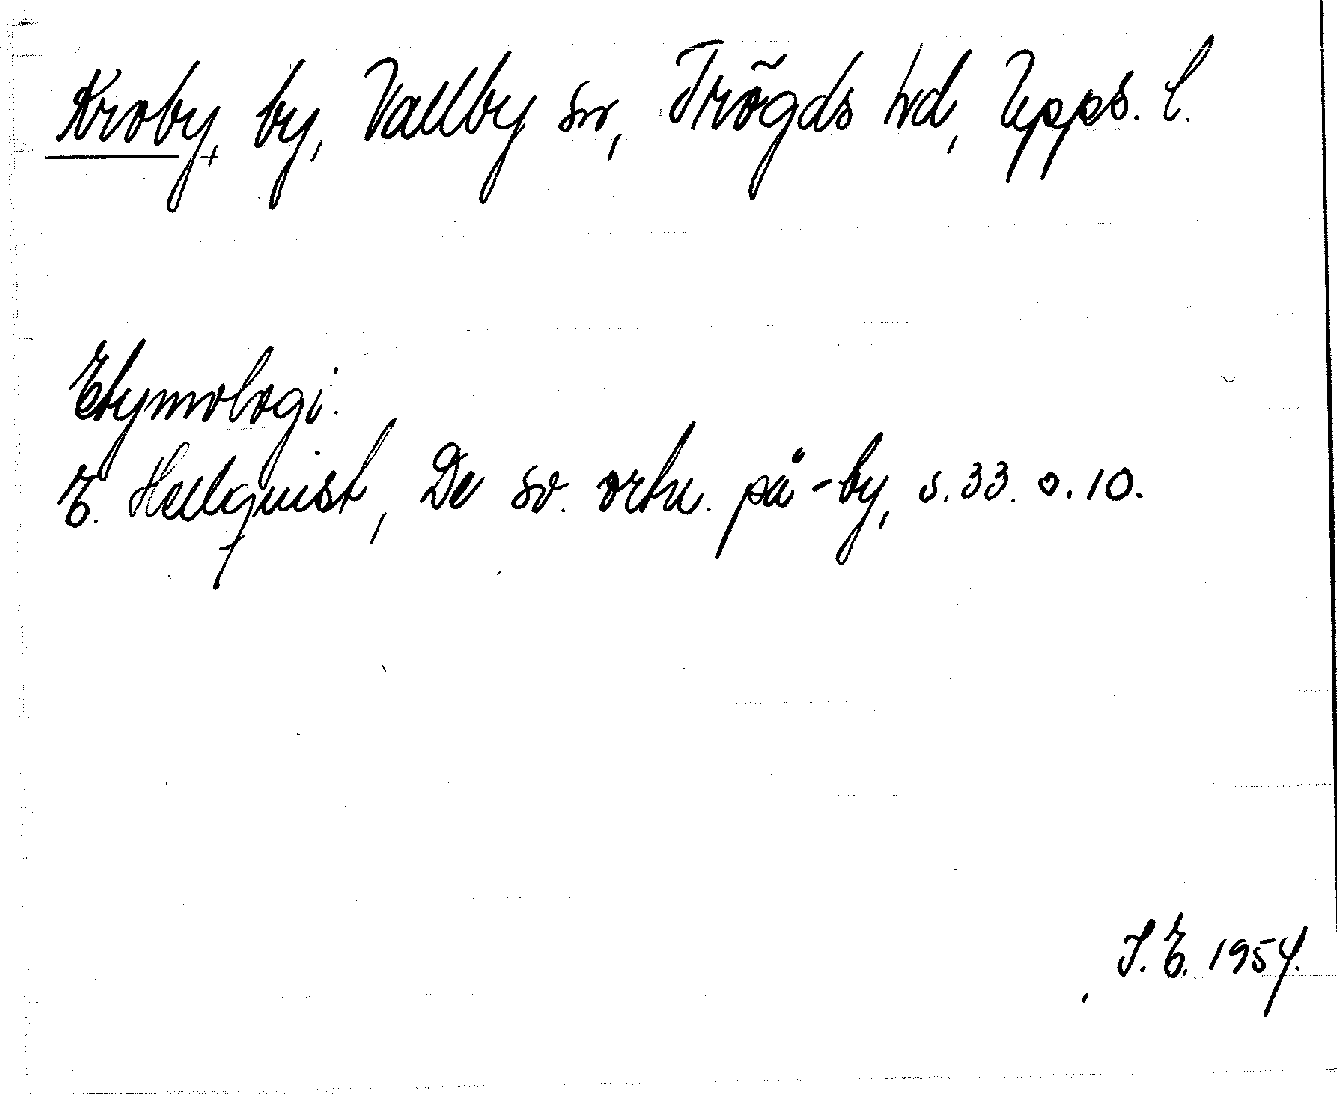 Kroby, by, Vallby sn, Trögds hd, Upps. l.
Etymologi.
E. Hellquist, De sv. ortn. på -by, s. 33. o. 10.
I. E. 1954.